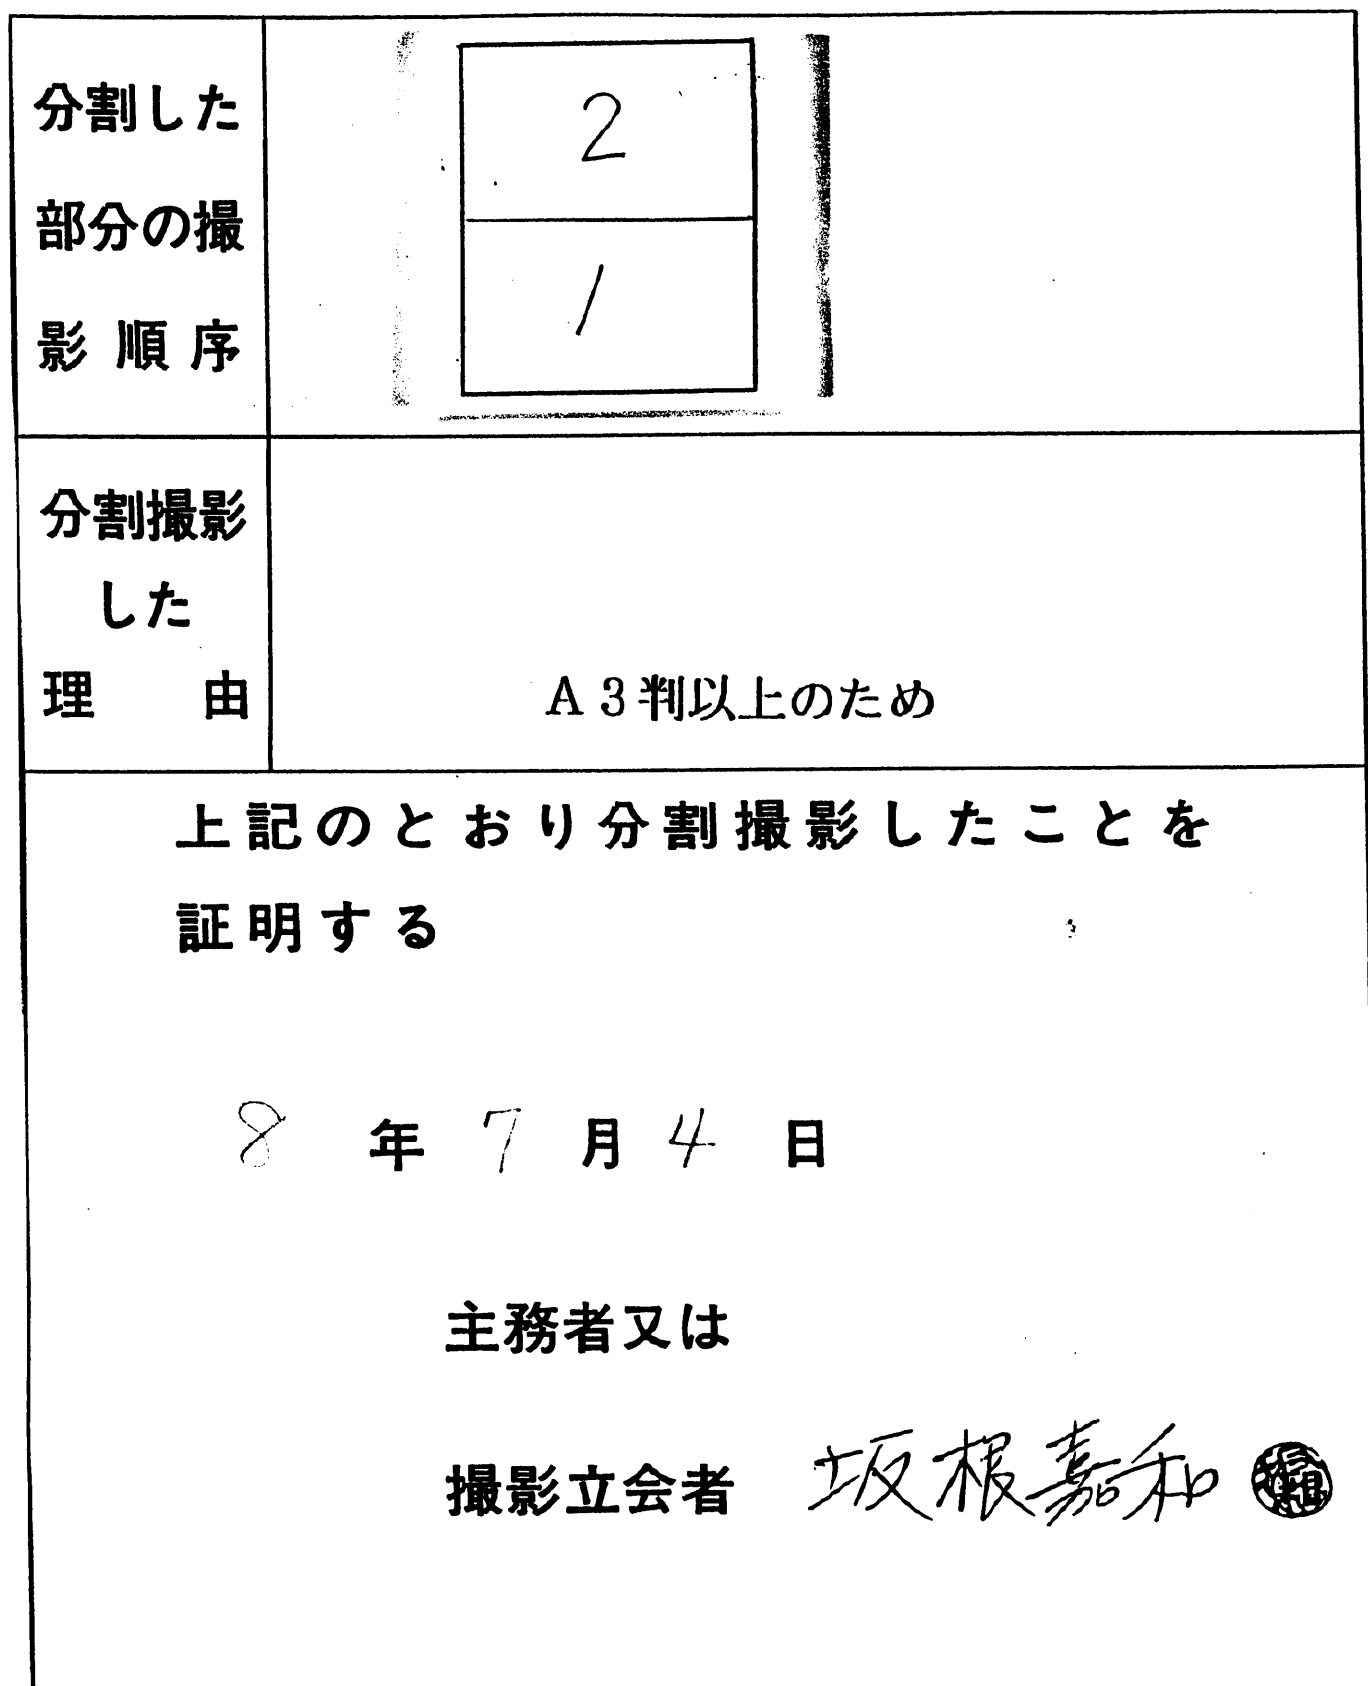 分割した
部分の撮
影順序
2
1
分割撮影
した
理由
A3判以上のため
上記のとおり分割撮影したことを
証明する
8年7月4日
主務者又は
撮影立会者 坂根嘉和